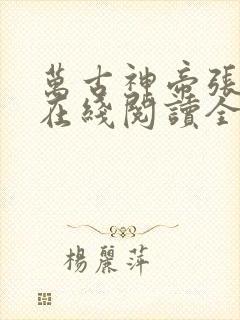 萬古神帝張
在綫閱讀全
楊麗萍